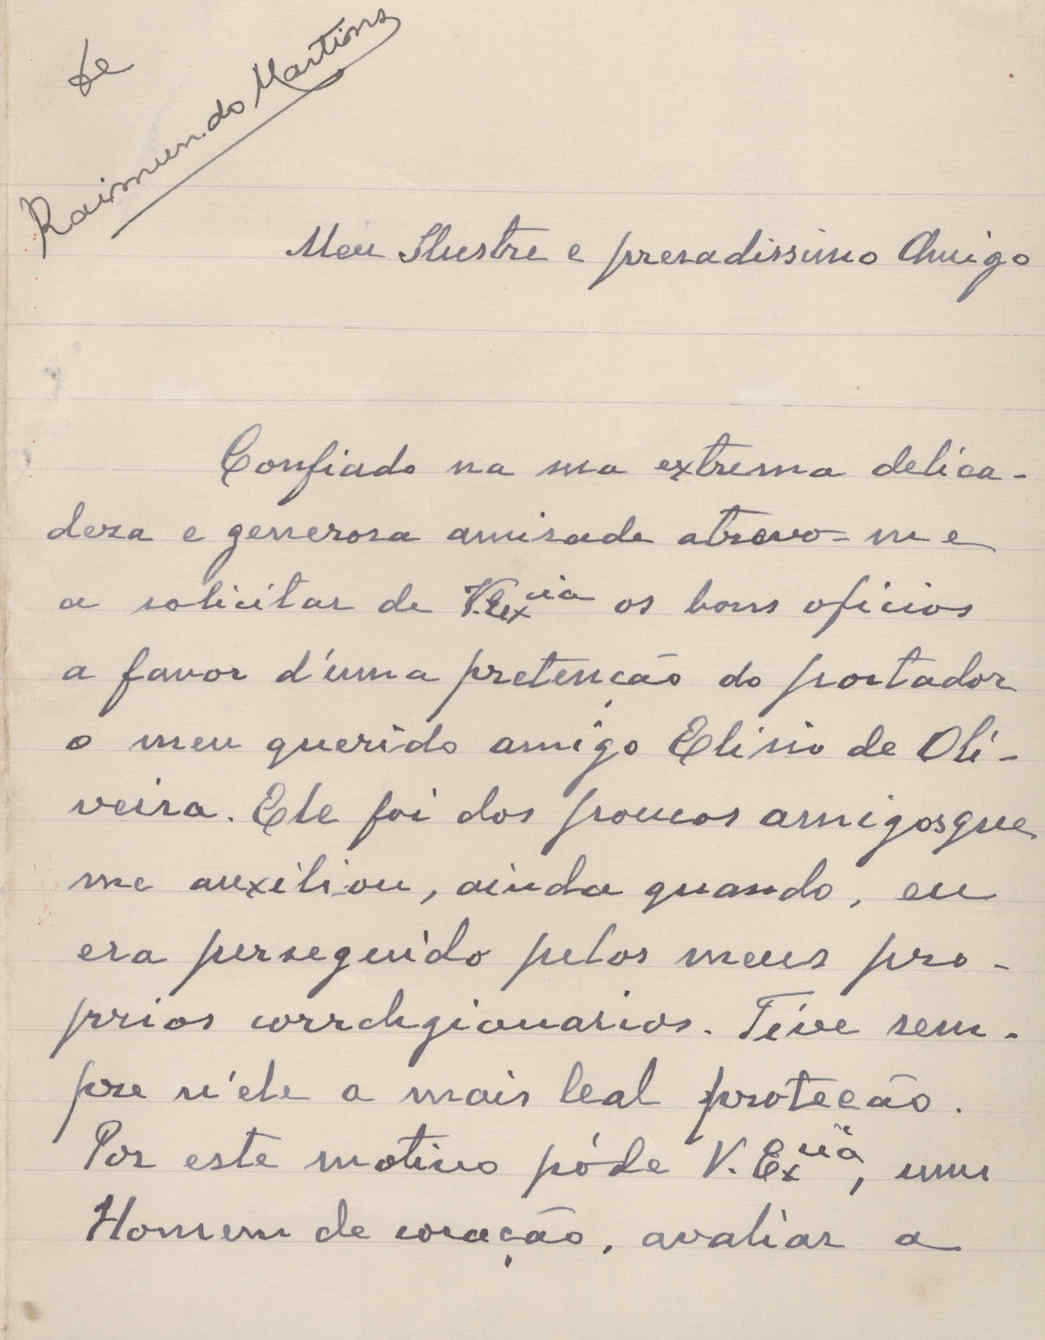 de
Raimundo Martins
Meu Ilustre e presadissimo Amigo
Confiado na sua extrema delica-
deza e generosa amisade atrevo-me
a solicitar de V.Ex.cia os bons oficios
a favor d'uma pretenção do portador
o meu querido amigo Elisio de Oli-
veira. Ele foi dos poucos amigos que
me auxiliou, ainda quando, eu
era perseguido pelos meus pro-
prios correligionarios. Tive sem-
pre n'ele a mais leal proteção.
Por este motivo póde V. Ex.cia, um
Homem de coração, avaliar a